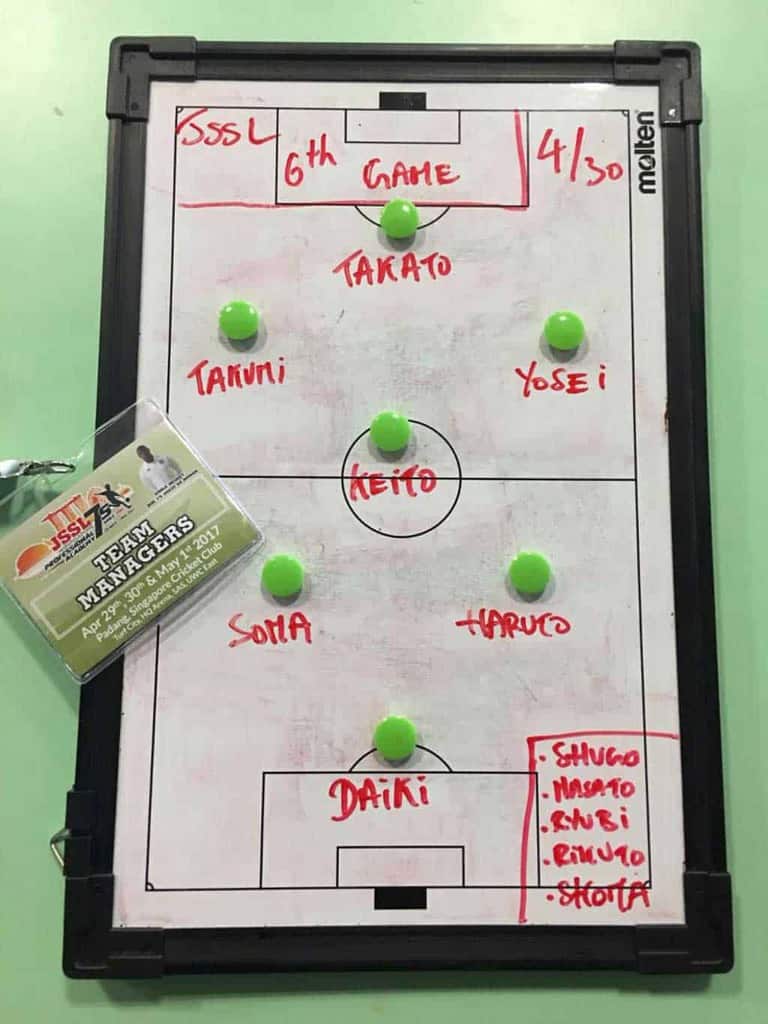 JSSL
6th GAME
4/30
molten
TAKATO
TAKUMI
YOSEI
KEITO
SOMA
HARUTO
DAIKI
· SHUGO
· MASATO
· RYUBI
· RIKUTO
· SHOTA
JSSL 7s
PROFESSIONAL ACADEMY
TEAM
MANAGERS
Apr 29th, 30th & May 1st 2017
Padang, Singapore Cricket Club
Turf City, HQ Arena, SAS, UWC East